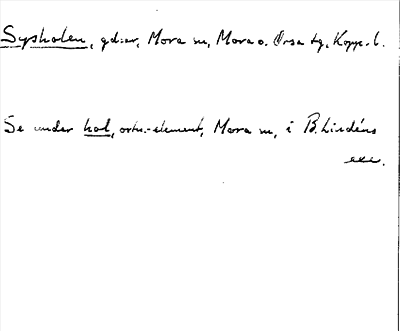 Sysholen, gd:ar, Mora sn, Mora o. Orsa tg, Kopp. l.
Se under hol, ortn.-element, Mora sn, i B. Lindéns
exc.